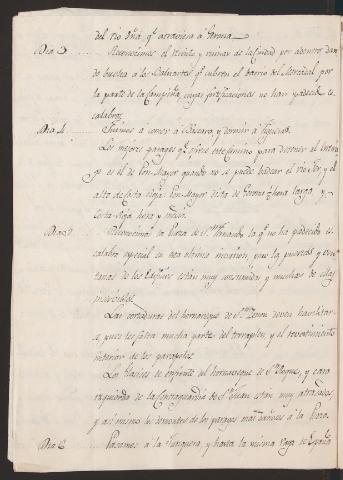 del rio Oñá, qᵉ atraviesa á Gerona.
Dia 3 .... Reconocimos el recinto y ruinas de la Ciudad por adentro, dan
do buelta a los Baluartes qᵉ cubren el barrio del Mercadal por
la parte de la Campiña, cuyas fortificaciones no han padecido es
calabro.
Dia 4 ..... Fuimos á comer á Báscara y dormir á Figueras.
Los mejores parages qᵉ ofrece este camino para detener al Enemi
go es el de Pon Mayor quando no se puede badear el rio Ter, y el
alto de Costa Roja. Pon Mayor dista de Gerona hora larga y
Costa Roja hora y media.
Dia 5 ..... Reconocimos la Plaza de Sⁿ Fernando la qᵉ no ha padecido es
calabro especial en esta última invasion, pero las puertas y ven
tanas de los Edificios están muy consumidas y muchas de ellas
inservibles.
Las cortaduras del hornaveque de Sⁿ Zenon deven havilitar
se, pues les falta mucha parte del terraplen, y el revestimiento
interior de los parapetos.
Los Glasises de enfrente del hornaveque de Sⁿ Roque, y cara
izquierda de la Contraguardia de Sⁿ Juan están muy atrasados,
y asi mismo los desmontes de los parages mas dañosos á la Plaza.
Dia 6 ..... Pasamos á la Junquera, y hasta la misma Raya de España